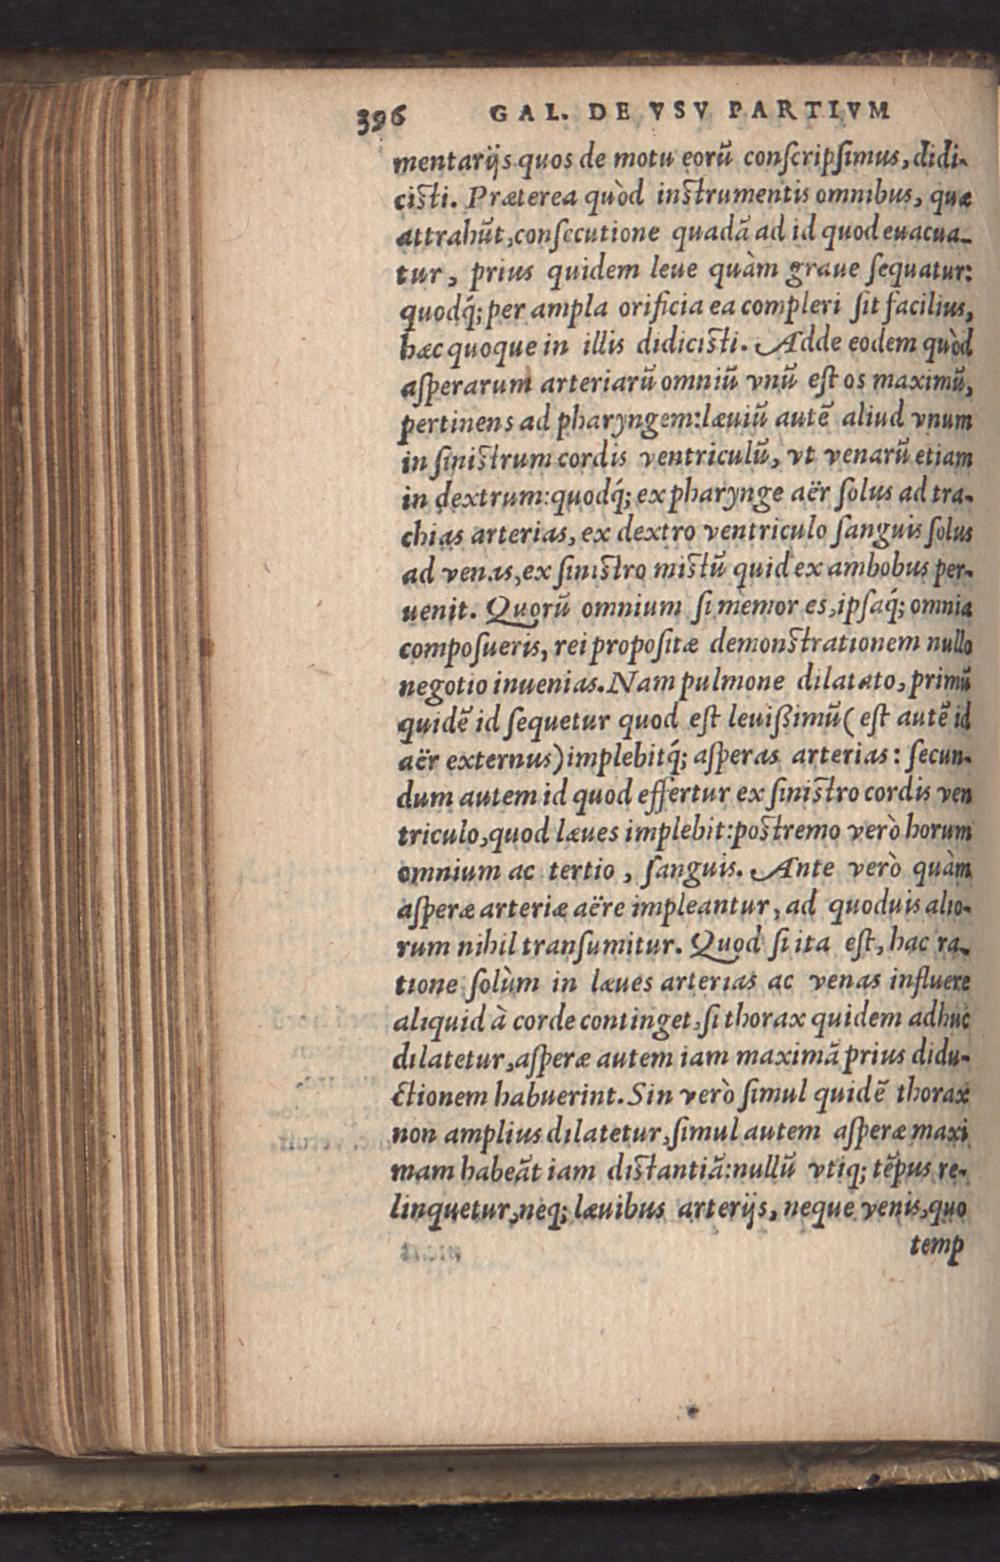 396 GAL. DE VSV PARTIVM
mentarijs quos de motu eorũ conſcripſimus, didi-
ciſti. Præterea quòd inſtrumentis omnibus, quæ
attrahũt, conſecutione quadã ad id quod euacua-
tur, prius quidem leue quàm graue ſequatur:
quodq́; per ampla orificia ea compleri ſit facilius,
hæc quoque in illis didiciſti. Adde eodem quòd
aſperarum arteriarũ omniũ vnũ eſt os maximũ,
pertinens ad pharyngem: læuiũ autẽ aliud vnum
in ſiniſtrum cordis ventriculũ, vt venarũ etiam
in dextrum: quodq́; ex pharynge aër ſolus ad tra-
chias arterias, ex dextro ventriculo ſanguis ſolus
ad venas, ex ſiniſtro miſtũ quid ex ambobus per-
uenit. Quorũ omnium ſi memor es, ipſaq́; omnia
compoſueris, rei propoſitæ demonſtrationem nullo
negotio inuenias. Nam pulmone dilatato, primũ
quidẽ id ſequetur quod eſt leuißimũ (eſt autẽ id
aër externus) implebitq́; aſperas arterias: ſecun-
dum autem id quod effertur ex ſiniſtro cordis ven
triculo, quod læues implebit: poſtremo verò horum
omnium ac tertio, ſanguis. Ante verò quàm
aſperæ arteriæ aëre impleantur, ad quoduis alio-
rum nihil tranſumitur. Quod ſi ita eſt, hac ra-
tione ſolùm in læues arterias ac venas influere
aliquid à corde continget, ſi thorax quidem adhuc
dilatetur, aſperæ autem iam maximã prius didu-
ctionem habuerint. Sin verò ſimul quidẽ thorax
non amplius dilatetur, ſimul autem aſperæ maxi
mam habeãt iam diſtantiã: nullũ vtiq; tẽpus re-
linquetur, neq; læuibus arterijs, neque venis, quo
temp